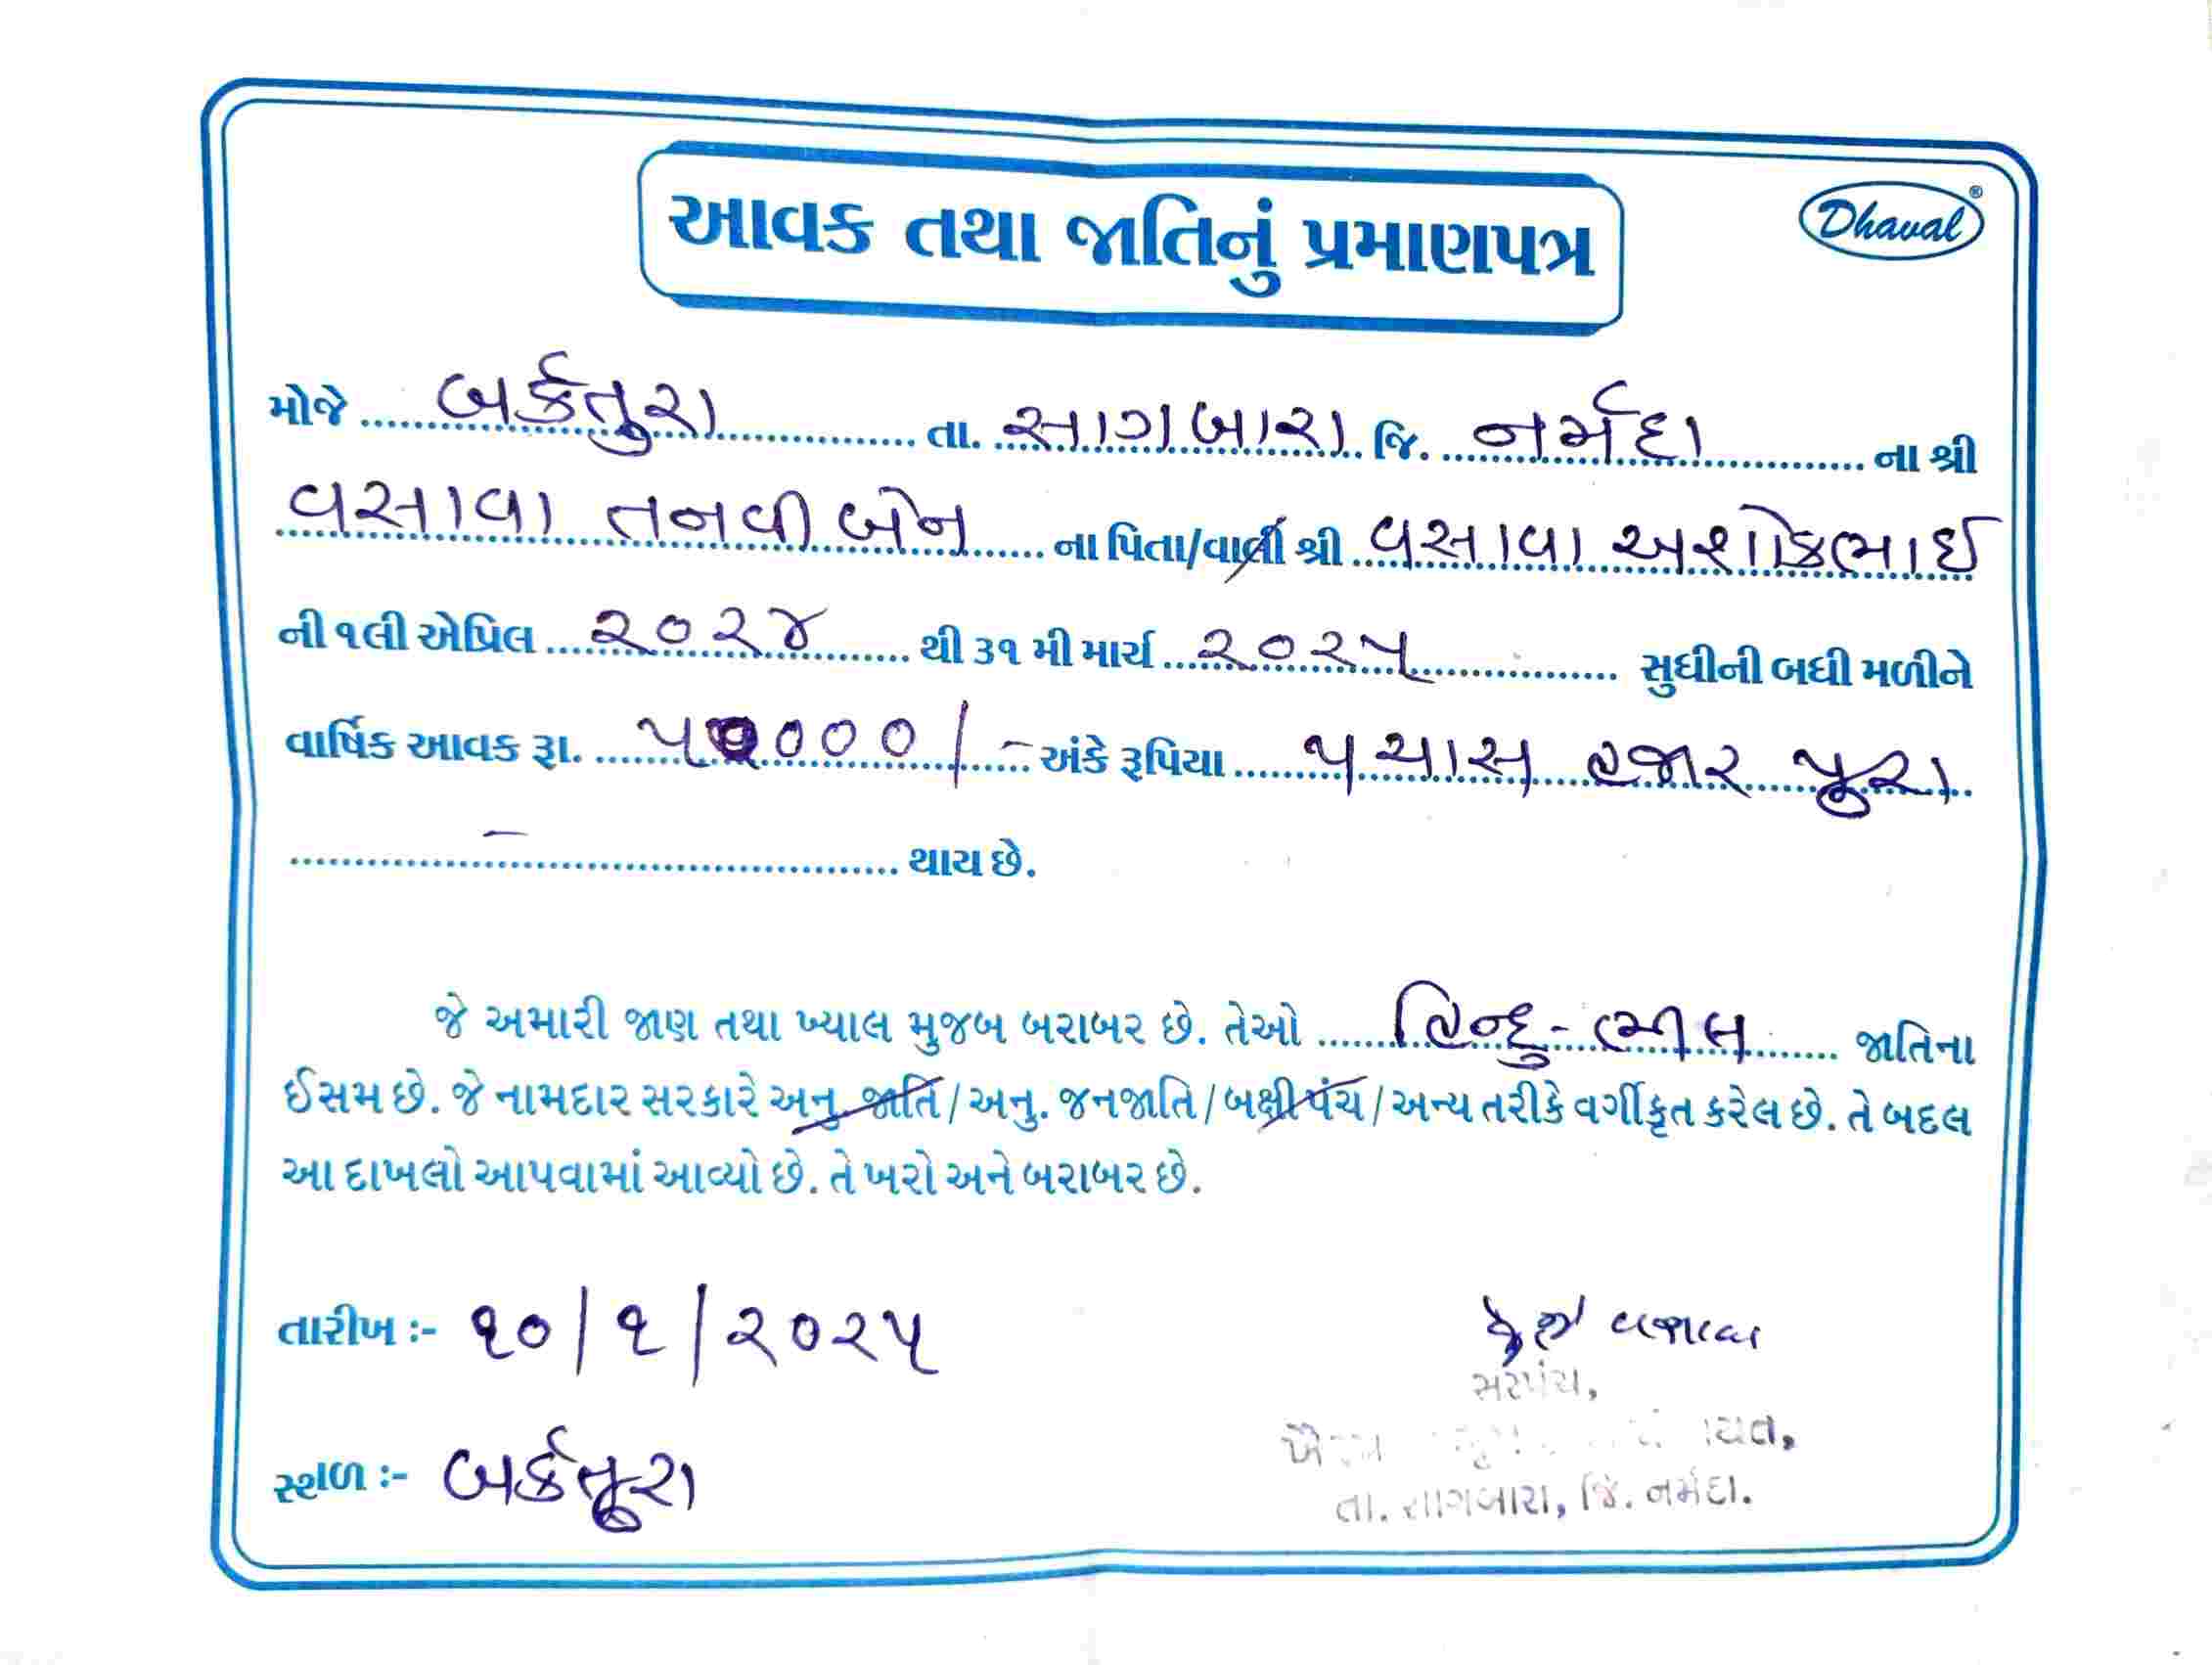 આવક તથા જાતિનું પ્રમાણપત્ર
Dhaval®
મોજે બર્કતુરા તા. સાગબારા જિ. નર્મદા ના શ્રી
વસાવા તનવીબેન ના પિતા/વાલી શ્રી વસાવા અશોકભાઈ
ની ૧લી એપ્રિલ ૨૦૨૪ થી ૩૧ મી માર્ચ ૨૦૨૫ સુધીની બધી મળીને
વાર્ષિક આવક રૂા. ૫૦૦૦૦/- અંકે રૂપિયા પચાસ હજાર પુરા
- થાય છે.
જે અમારી જાણ તથા ખ્યાલ મુજબ બરાબર છે. તેઓ હિન્દુ-ભીલ જાતિના
ઈસમ છે. જે નામદાર સરકારે અનુ. જાતિ/અનુ. જનજાતિ/બક્ષીપંચ/અન્ય તરીકે વર્ગીકૃત કરેલ છે. તે બદલ
આ દાખલો આપવામાં આવ્યો છે. તે ખરો અને બરાબર છે.
તારીખ :- ૧૦/૧/૨૦૨૫
વસાવા
સરપંચ,
સ્થળ :- બર્કતુરા
તા. સાગબારા, જિ. નર્મદા.